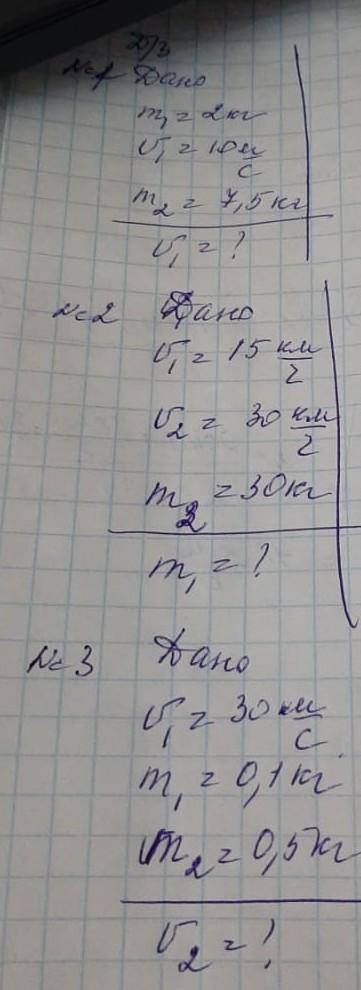 Д/з
№1 Дано
m₁ = 2 кг
υ₁ = 10 м/с
m₂ = 7,5 кг
υ₁ = ?
№2 Дано
υ₁ = 15 км/г
υ₂ = 30 км/г
m₂ = 30 кг
m₁ = ?
№3 Дано
υ₁ = 30 м/с
m₁ = 0,1 кг
m₂ = 0,5 кг
υ₂ = ?